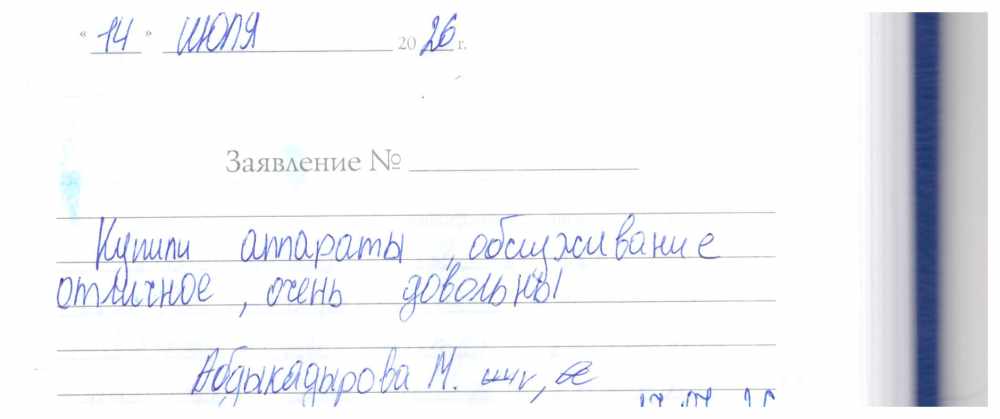 « 14 » июля 2026 г.
Заявление №
Купили аппараты, обслуживание
отличное, очень довольны
Абдыкадырова М.